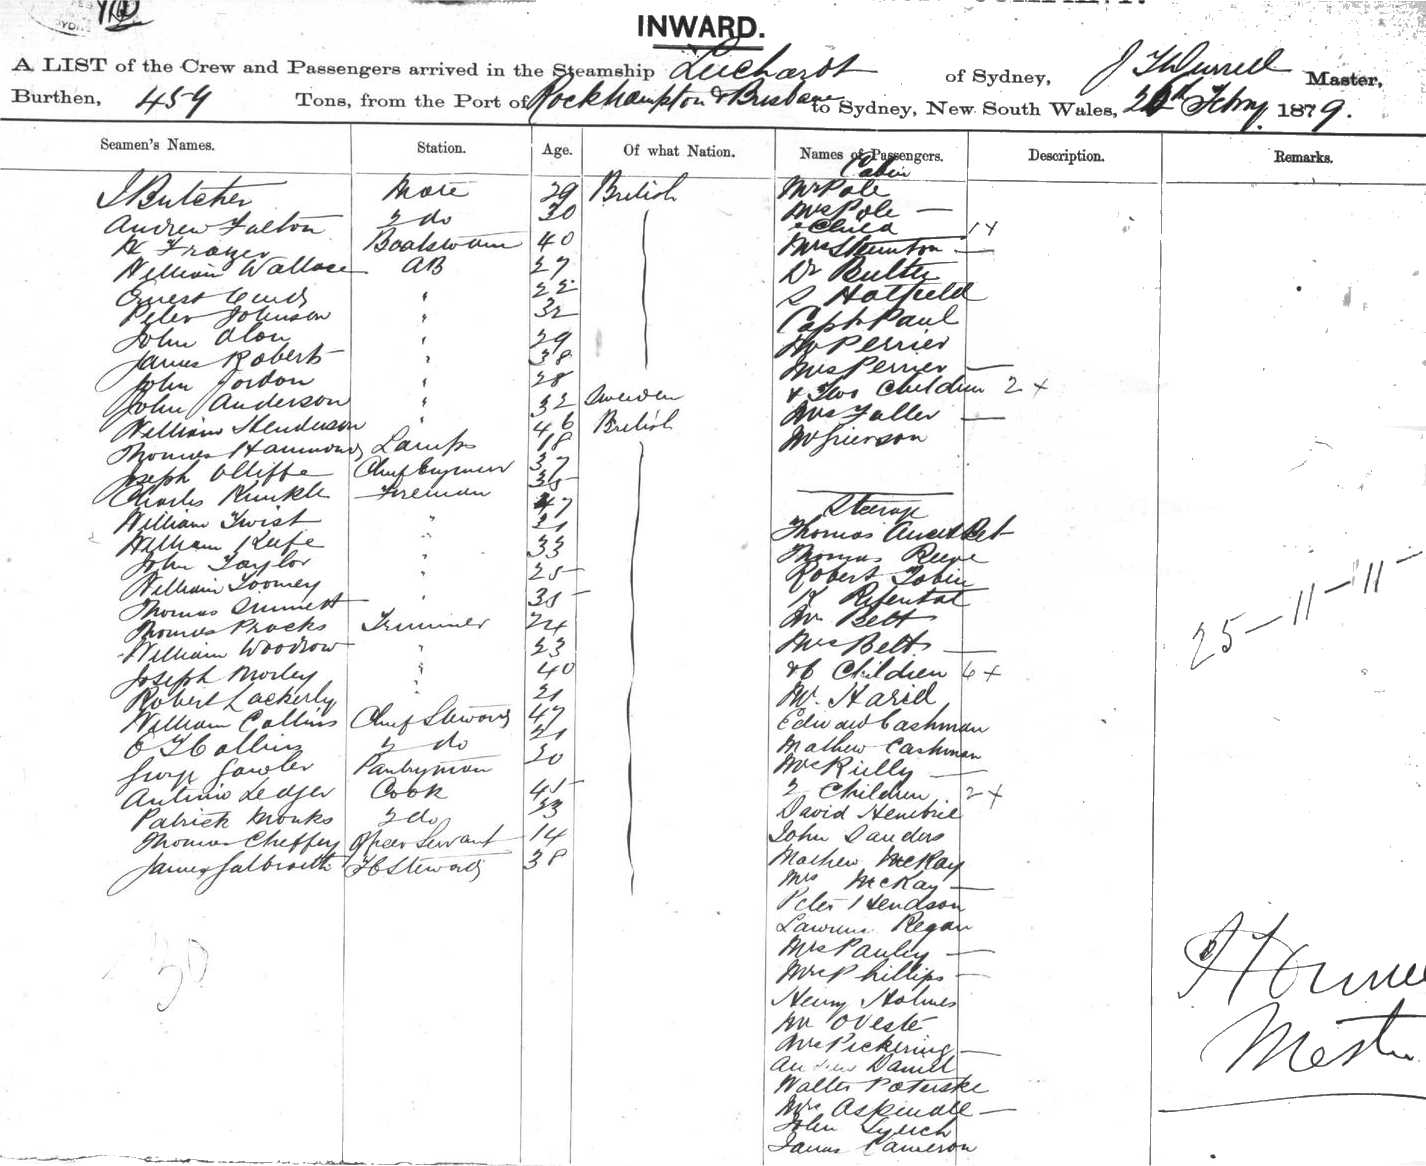 INWARD.
A LIST of the Crew and Passengers arrived in the Steamship Leichardt of Sydney, Master,
Burthen, 459 Tons, from the Port of Rockhampton & Brisbane to Sydney, New South Wales, Febry 1879.
Seamen's Names. Station. Age. Of what Nation. Names of Passengers. Description. Remarks.
Cabin
J Butcher Mate 29 British Mr Pole
Andrew Fulton 2 do 30 Mrs Pole —
Child 1 x
Frazer Boatswain 40 Mrs —
William Wallace AB 27 Dr
Ernest 22 S Hatfield
Peter Johnson " 32 Capt Paul
John " 29 Mr Perrier
James Roberts " 38 Mrs Perrier —
John Jordon " 28 & Two Children 2 x
John Anderson " 32 Sweden Mrs Fuller —
William Henderson " 46 British Mr Grierson
Thomas Hammond Lamps 18
Joseph Olliffe Chief Engineer 37
Charles Kunkle Fireman 35 Steerage
William Twist " 47 Thomas
William Keefe " 21 Thomas Reeve
John Taylor " 33 Robert Tobin
William Toomey " 25 R
Thomas Sinnett " 35 Mr Betts
Thomas Procks Trimmer 24 Mrs Betts —
William Woodrow " 23 & 6 Children 6 x
Joseph Morley " 40 W.
Robert Lackerly " 21 Edward Cashman
William Collins Chief Steward 47 Mathew Cashman
Collins 2 do 21 Mrs Rielly —
George Gowler Pantryman 30 2 Children 2 x
Antonio Ledger Cook 45 David
Patrick Monks 2 do 33 John Sanders
Thomas Cheffey Officer Servant 14 Mathew McKay
James Galbraith FC Steward 38 Mrs McKay —
Peter Hendson
Lawrence Regan
Mrs Pauley —
Mrs Phillips —
Henry Holmes
Mr
Mrs Pickering —
Daniel
Walter
Mrs Aspinall —
John Lynch
James Cameron
25 – 11 – 11 –
30